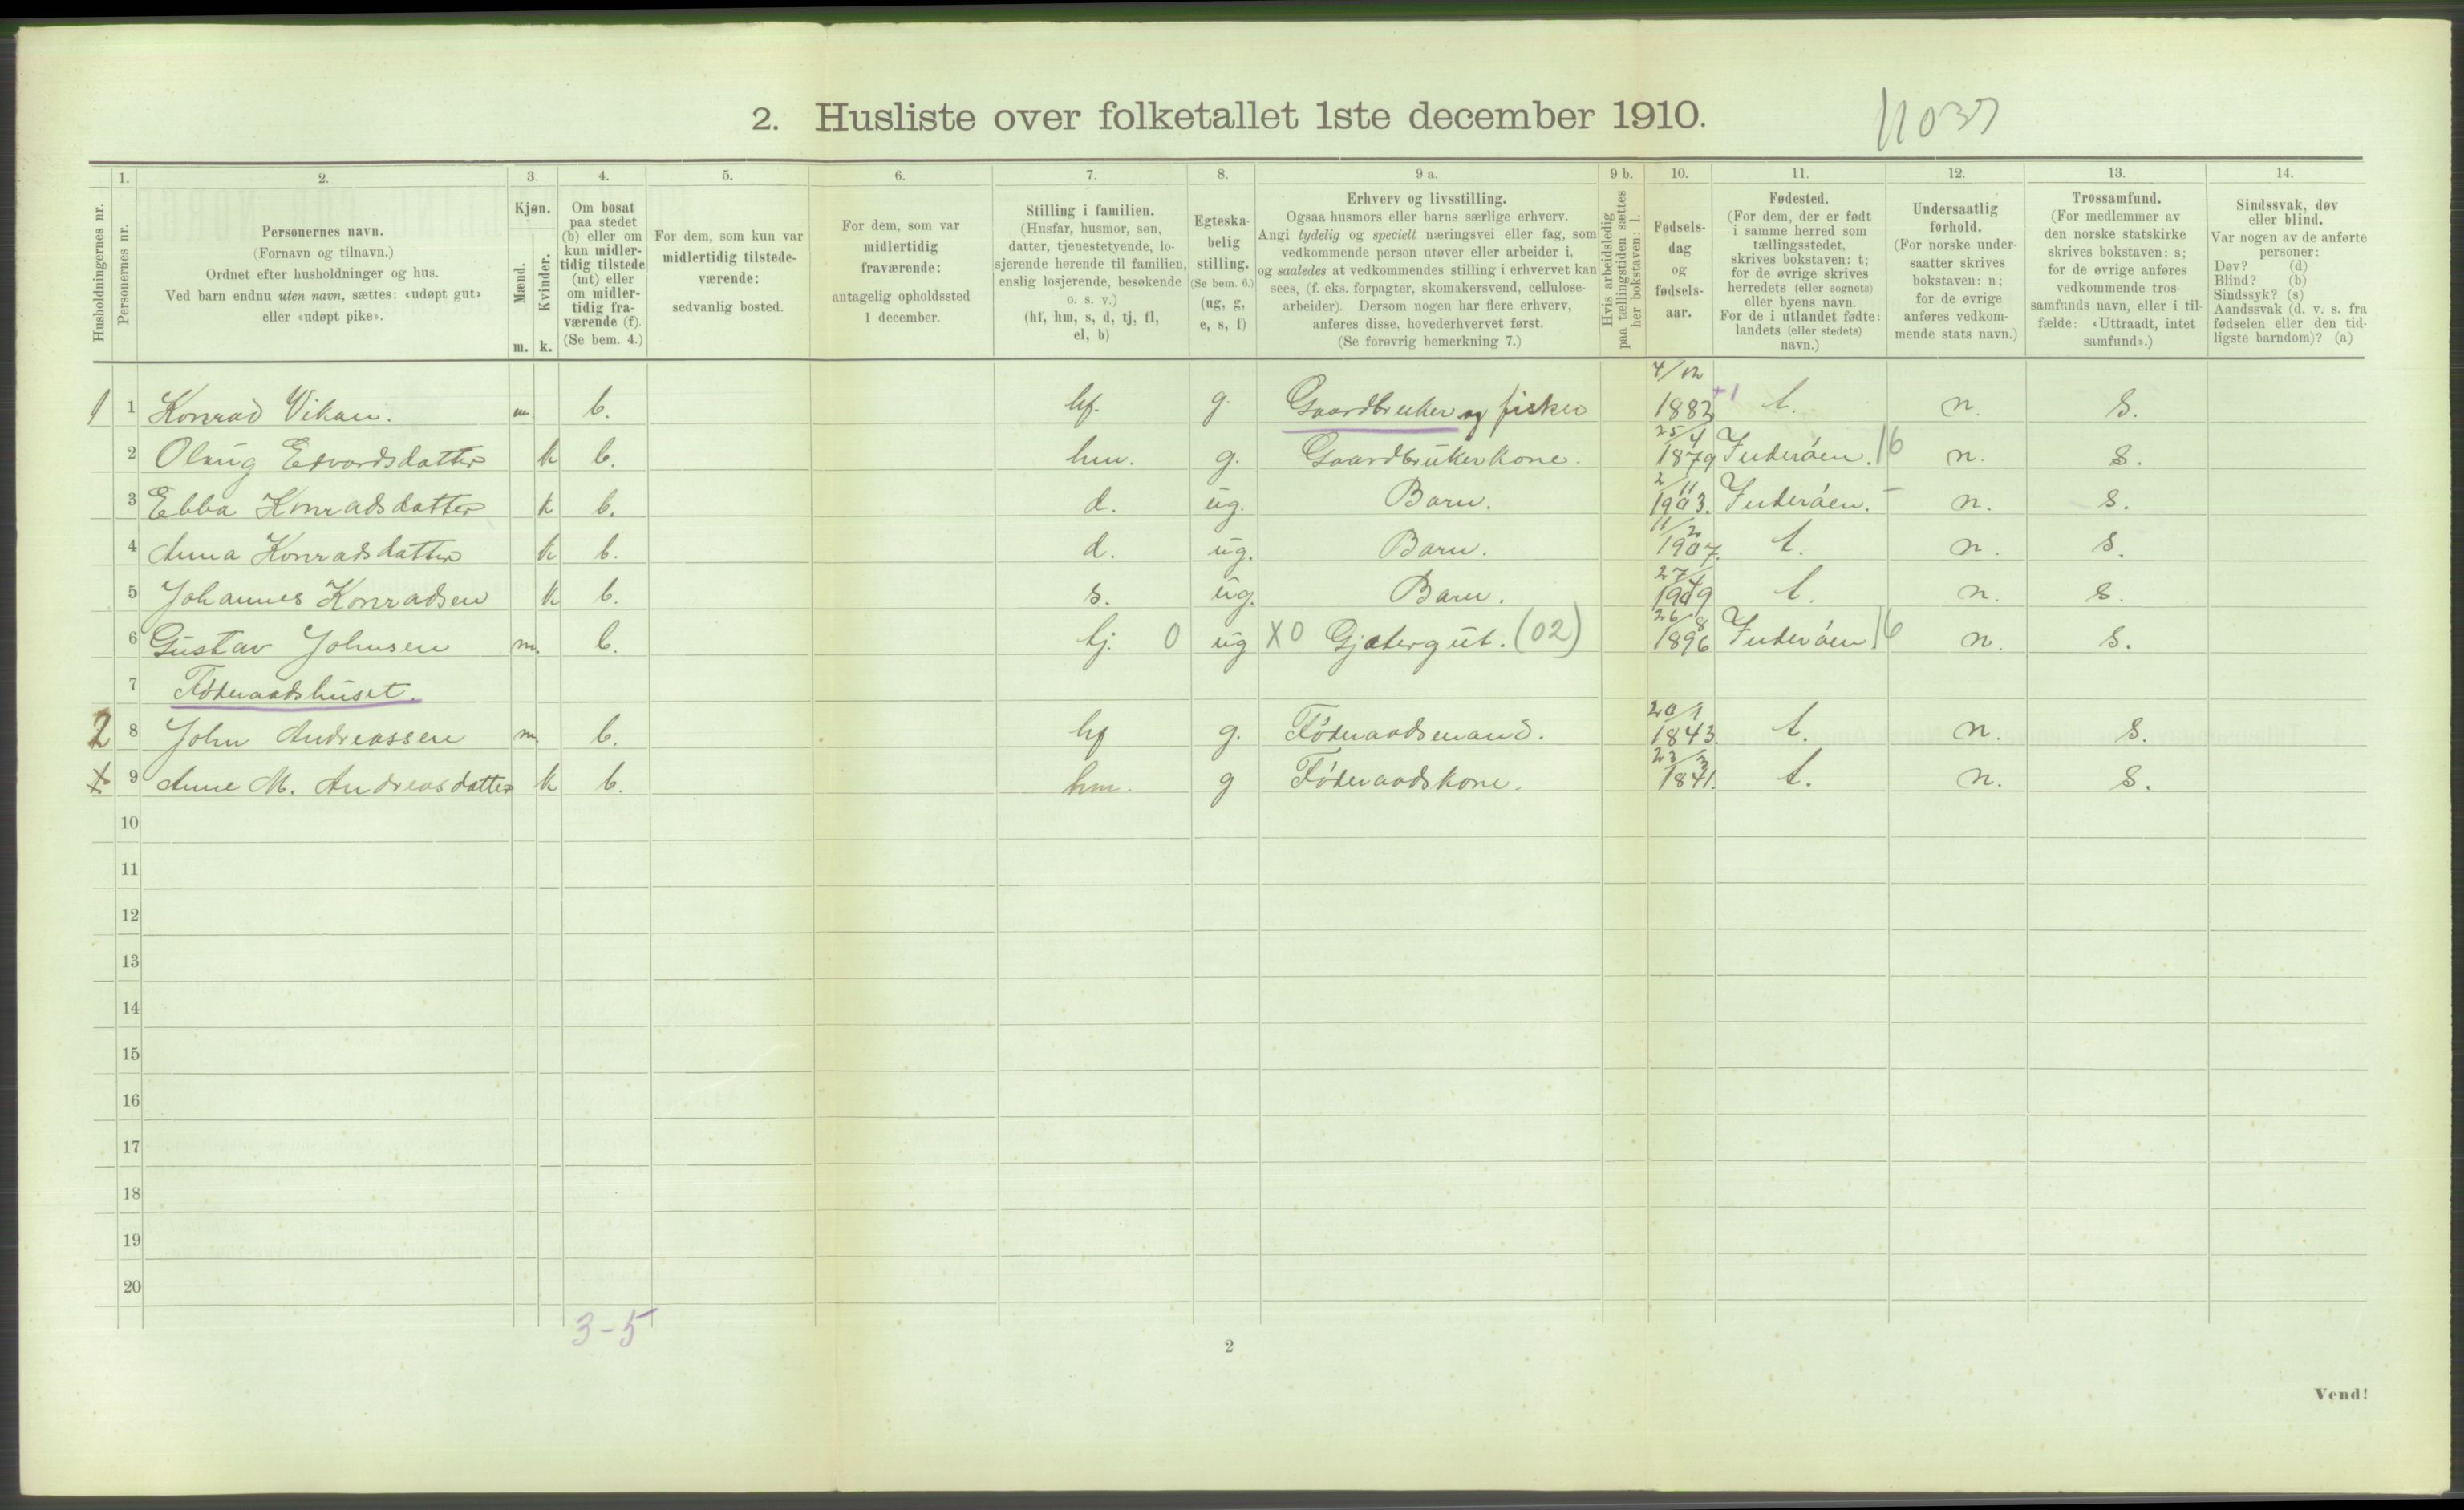 2. Husliste over folketallet 1ste december 1910.
11037
1. 2. 3. 4. 5. 6. 7. 8. 9 a. 9 b. 10. 11. 12. 13. 14.
Husholdningernes nr.
Personernes nr.
Personernes navn.
(Fornavn og tilnavn.)
Ordnet efter husholdninger og hus.
Ved barn endnu uten navn, sættes: «udøpt gut»
eller «udøpt pike».
Kjøn.
Mænd.
Kvinder.
m. k.
Om bosat
paa stedet
(b) eller om
kun midler-
tidig tilstede
(mt) eller
om midler-
tidig fra-
værende (f).
(Se bem. 4.)
For dem, som kun var
midlertidig tilstede-
værende:
sedvanlig bosted.
For dem, som var
midlertidig
fraværende:
antagelig opholdssted
1 december.
Stilling i familien.
(Husfar, husmor, søn,
datter, tjenestetyende, lo-
sjerende hørende til familien,
enslig losjerende, besøkende
o. s. v.)
(hf, hm, s, d, tj, fl,
el, b)
Egteska-
belig
stilling.
(Se bem. 6.)
(ug, g,
e, s, f)
Erhverv og livsstilling.
Ogsaa husmors eller barns særlige erhverv.
Angi tydelig og specielt næringsvei eller fag, som
vedkommende person utøver eller arbeider i,
og saaledes at vedkommendes stilling i erhvervet kan
sees, (f. eks. forpagter, skomakersvend, cellulose-
arbeider). Dersom nogen har flere erhverv,
anføres disse, hovederhvervet først.
(Se forøvrig bemerkning 7.)
Hvis arbeidsledig
paa tællingstiden sættes
her bokstaven: l.
Fødsels-
dag
og
fødsels-
aar.
Fødested.
(For dem, der er født
i samme herred som
tællingsstedet,
skrives bokstaven: t;
for de øvrige skrives
herredets (eller sognets)
eller byens navn.
For de i utlandet fødte:
landets (eller stedets)
navn.)
Undersaatlig
forhold.
(For norske under-
saatter skrives
bokstaven: n;
for de øvrige
anføres vedkom-
mende stats navn.)
Trossamfund.
(For medlemmer av
den norske statskirke
skrives bokstaven: s;
for de øvrige anføres
vedkommende tros-
samfunds navn, eller i til-
fælde: «Uttraadt, intet
samfund».)
Sindssvak, døv
eller blind.
Var nogen av de anførte
personer:
Døv? (d)
Blind? (b)
Sindssyk? (s)
Aandssvak (d. v. s. fra
fødselen eller den tid-
ligste barndom)? (a)
1 1 Konrad Vikan. m. b. hf. g. Gaardbruker og fisker 4/12 1882 +1 t. n. s.
2 Olaug Edvardsdatter k b. hm. g. Gaardbrukerkone. 25/4 1879 Inderøen. 16 n. s.
3 Ebba Konradsdatter k b. d. ug. Barn. 2/11 1903. Inderøen. – n. s.
4 Anna Konradsdatter k b. d. ug. Barn. 11/2 1907. t. n. s.
5 Johannes Konradsen k b. s. ug. Barn. 27/4 1909 t. n. s.
6 Gustav Johnsen m. b. tj. 0 ug X0 Gjætergut. (02) 26/8 1896 Inderøen 16 n. s.
7 Føderaadshuset.
2 8 John Andreassen m. b. hf g. Føderaadsmand. 20/1 1843. t. n. s.
x 9 Anne M. Andreasdatter k b. hm. g Føderaadskone. 23/3 1841. t. n. s.
10
11
12
13
14
15
16
17
18
19
20
3-5
2
Vend!